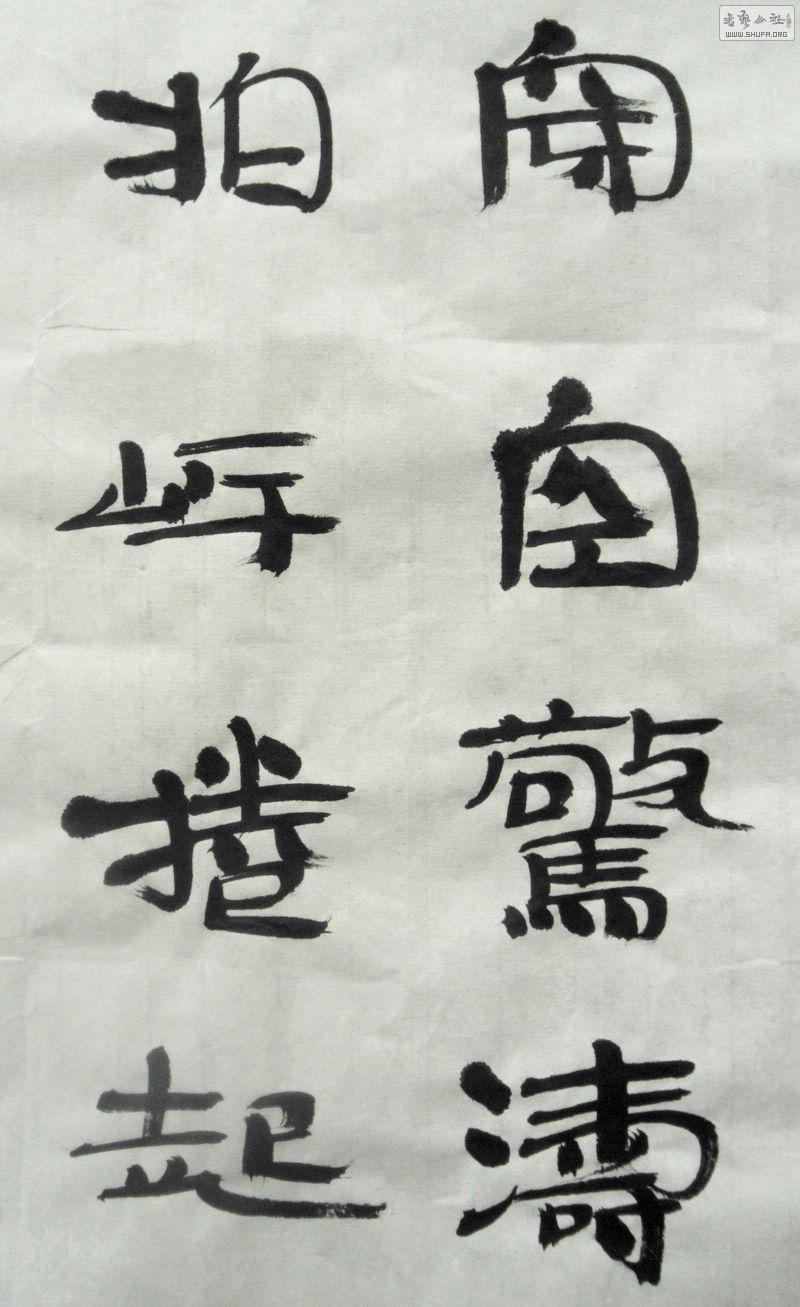 穿空驚濤
拍岸捲起
書藝公社
WWW.SHUFA.ORG